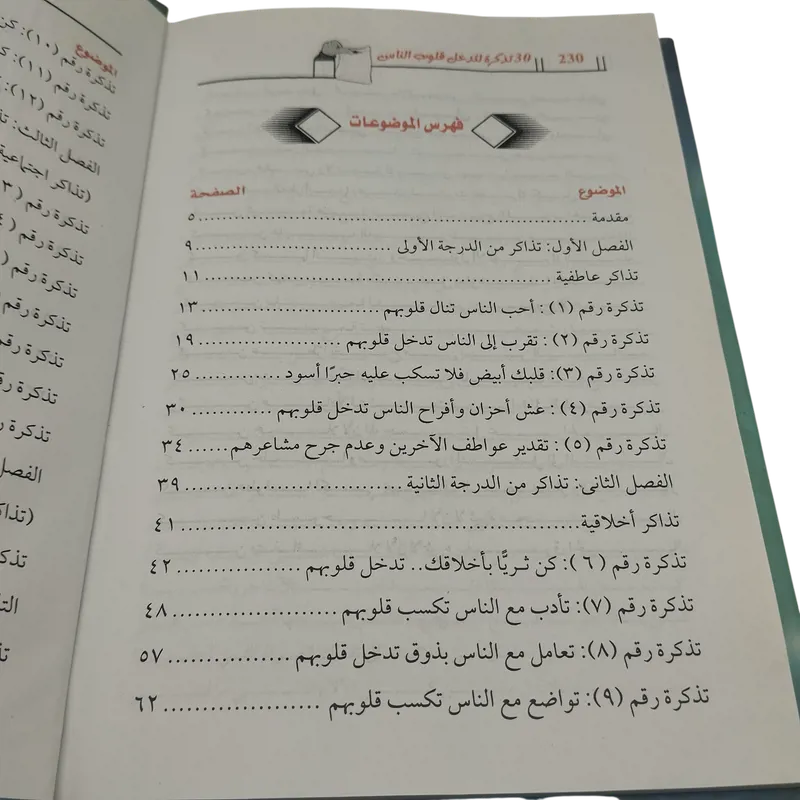 230 30 تذكرة لتدخل قلوب الناس
فهرس الموضوعات
الموضوع الصفحة
مقدمة ........ ٥
الفصل الأول: تذاكر من الدرجة الأولى ........ ٩
تذاكر عاطفية ........ ١١
تذكرة رقم (١) : أحب الناس تنال قلوبهم ........ ١٣
تذكرة رقم (٢) : تقرب إلى الناس تدخل قلوبهم ........ ١٩
تذكرة رقم (٣): قلبك أبيض فلا تسكب عليه حبرًا أسود ........ ٢٥
تذكرة رقم (٤) : عش أحزان وأفراح الناس تدخل قلوبهم ........ ٣٠
تذكرة رقم (٥) : تقدير عواطف الآخرين وعدم جرح مشاعرهم ...... ٣٤
الفصل الثانى: تذاكر من الدرجة الثانية ........ ٣٩
تذاكر أخلاقية ........ ٤١
تذكرة رقم (٦) : كن ثريًّا بأخلاقك.. تدخل قلوبهم ........ ٤٢
تذكرة رقم (٧): تأدب مع الناس تكسب قلوبهم ........ ٤٨
تذكرة رقم (٨): تعامل مع الناس بذوق تدخل قلوبهم ........ ٥٧
تذكرة رقم (٩): تواضع مع الناس تكسب قلوبهم ........ ٦٢
الموضوع
تذكرة رقم (١٠): كن
تذكرة رقم (١١):
تذكرة رقم (١٢):
الفصل الثالث:
(تذاكر اجتماعية
تذكرة رقم (
تذكرة رقم (
تذكرة رقم (
تذكرة رقم
تذكرة رقم
تذكرة
تذكرة
الفصل